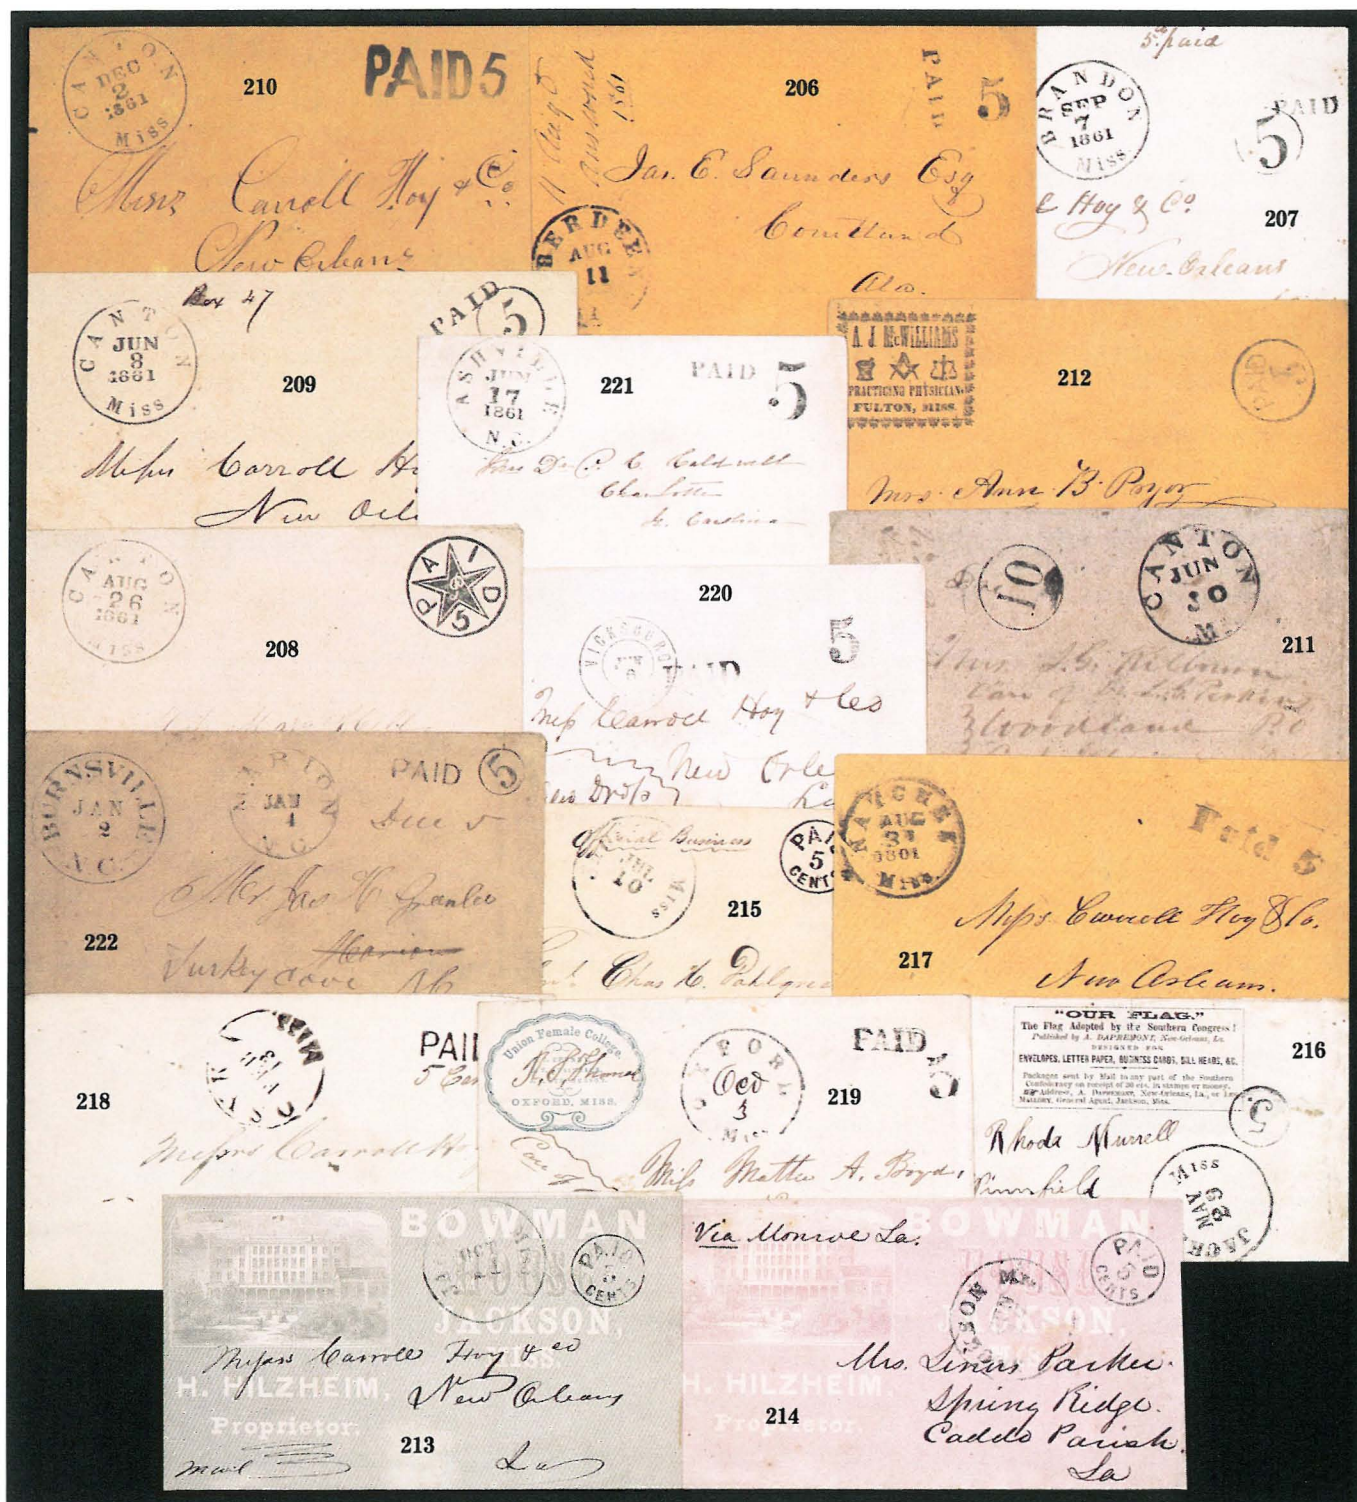 CANTON
DEC
2
1861
Miss
210
PAID 5
Carroll Hoy & Co
New Orleans
11 Aug
answered
1861
206
PAID
5
Jas. E. Saunders Esq
Courtland
Ala.
BERDEEN
AUG
11
5 paid
BRANDON
SEP
7
1861
Miss
PAID
5
Hoy & Co
207
New Orleans
Box 47
CANTON
JUN
8
1861
Miss
209
PAID
5
Carroll
New Orl
ASHVILLE
JUN
17
1861
N.C.
221
PAID
5
Caldwell
Charlotte
Carolina
A. J. McWILLIAMS
PRACTICING PHYSICIAN
FULTON, MISS.
212
PAID
Mrs. Ann B. Pryor
CANTON
AUG
26
1861
MISS
208
PAID
5
220
VICKSBURG
PAID
5
Mess Carroll Hoy & Co
New Orle
10
CANTON
JUN
M
211
Mrs.
Care of
Woodland P.O
BURNSVILLE
JAN
2
N.C.
MARION
JAN
1
N.C.
PAID
5
Due 5
222
Mr Jas H
Marion
Turkey Cove NC
Official Business
JUL
10
Miss
PAID
5
CENTS
215
Chas
NATCHEZ
AUG
31
1861
Miss.
Paid 5
217
Carroll Hoy & Co.
New Orleans.
218
MISS
PAI
5 Cen
Messrs Carroll
Union Female College,
OXFORD, MISS.
OXFORD
Oct
3
Miss
219
PAID
5
Miss Mattie A. Boyd,
"OUR FLAG."
The Flag Adopted by the Southern Congress!
Published by A. DAPREMONT, New-Orleans, La.
DESIGNED FOR
ENVELOPES, LETTER PAPER, BUSINESS CARDS, BILL HEADS, &C.
Packages sent by Mail to any part of the Southern
Confederacy on receipt of 30 cts. in stamps or money.
Address, A. DAPREMONT, New-Orleans, La., or
General Agent, Jackson, Miss.
216
5
Rhoda Murrell
Miss
MAY
29
JACK
BOWMAN
HOUSE
JACKSON,
MISS.
H. HILZHEIM,
Proprietor
OCT
PAID
5
CENTS
Messrs Carroll Hoy & co
New Orleans
La
213
mail
Via Monroe La.
BOWMAN
HOUSE
JACKSON,
H. HILZHEIM,
Proprietor
PAID
5
CENTS
Mrs. Linus Parker.
Spring Ridge.
Caddo Parish.
La
214